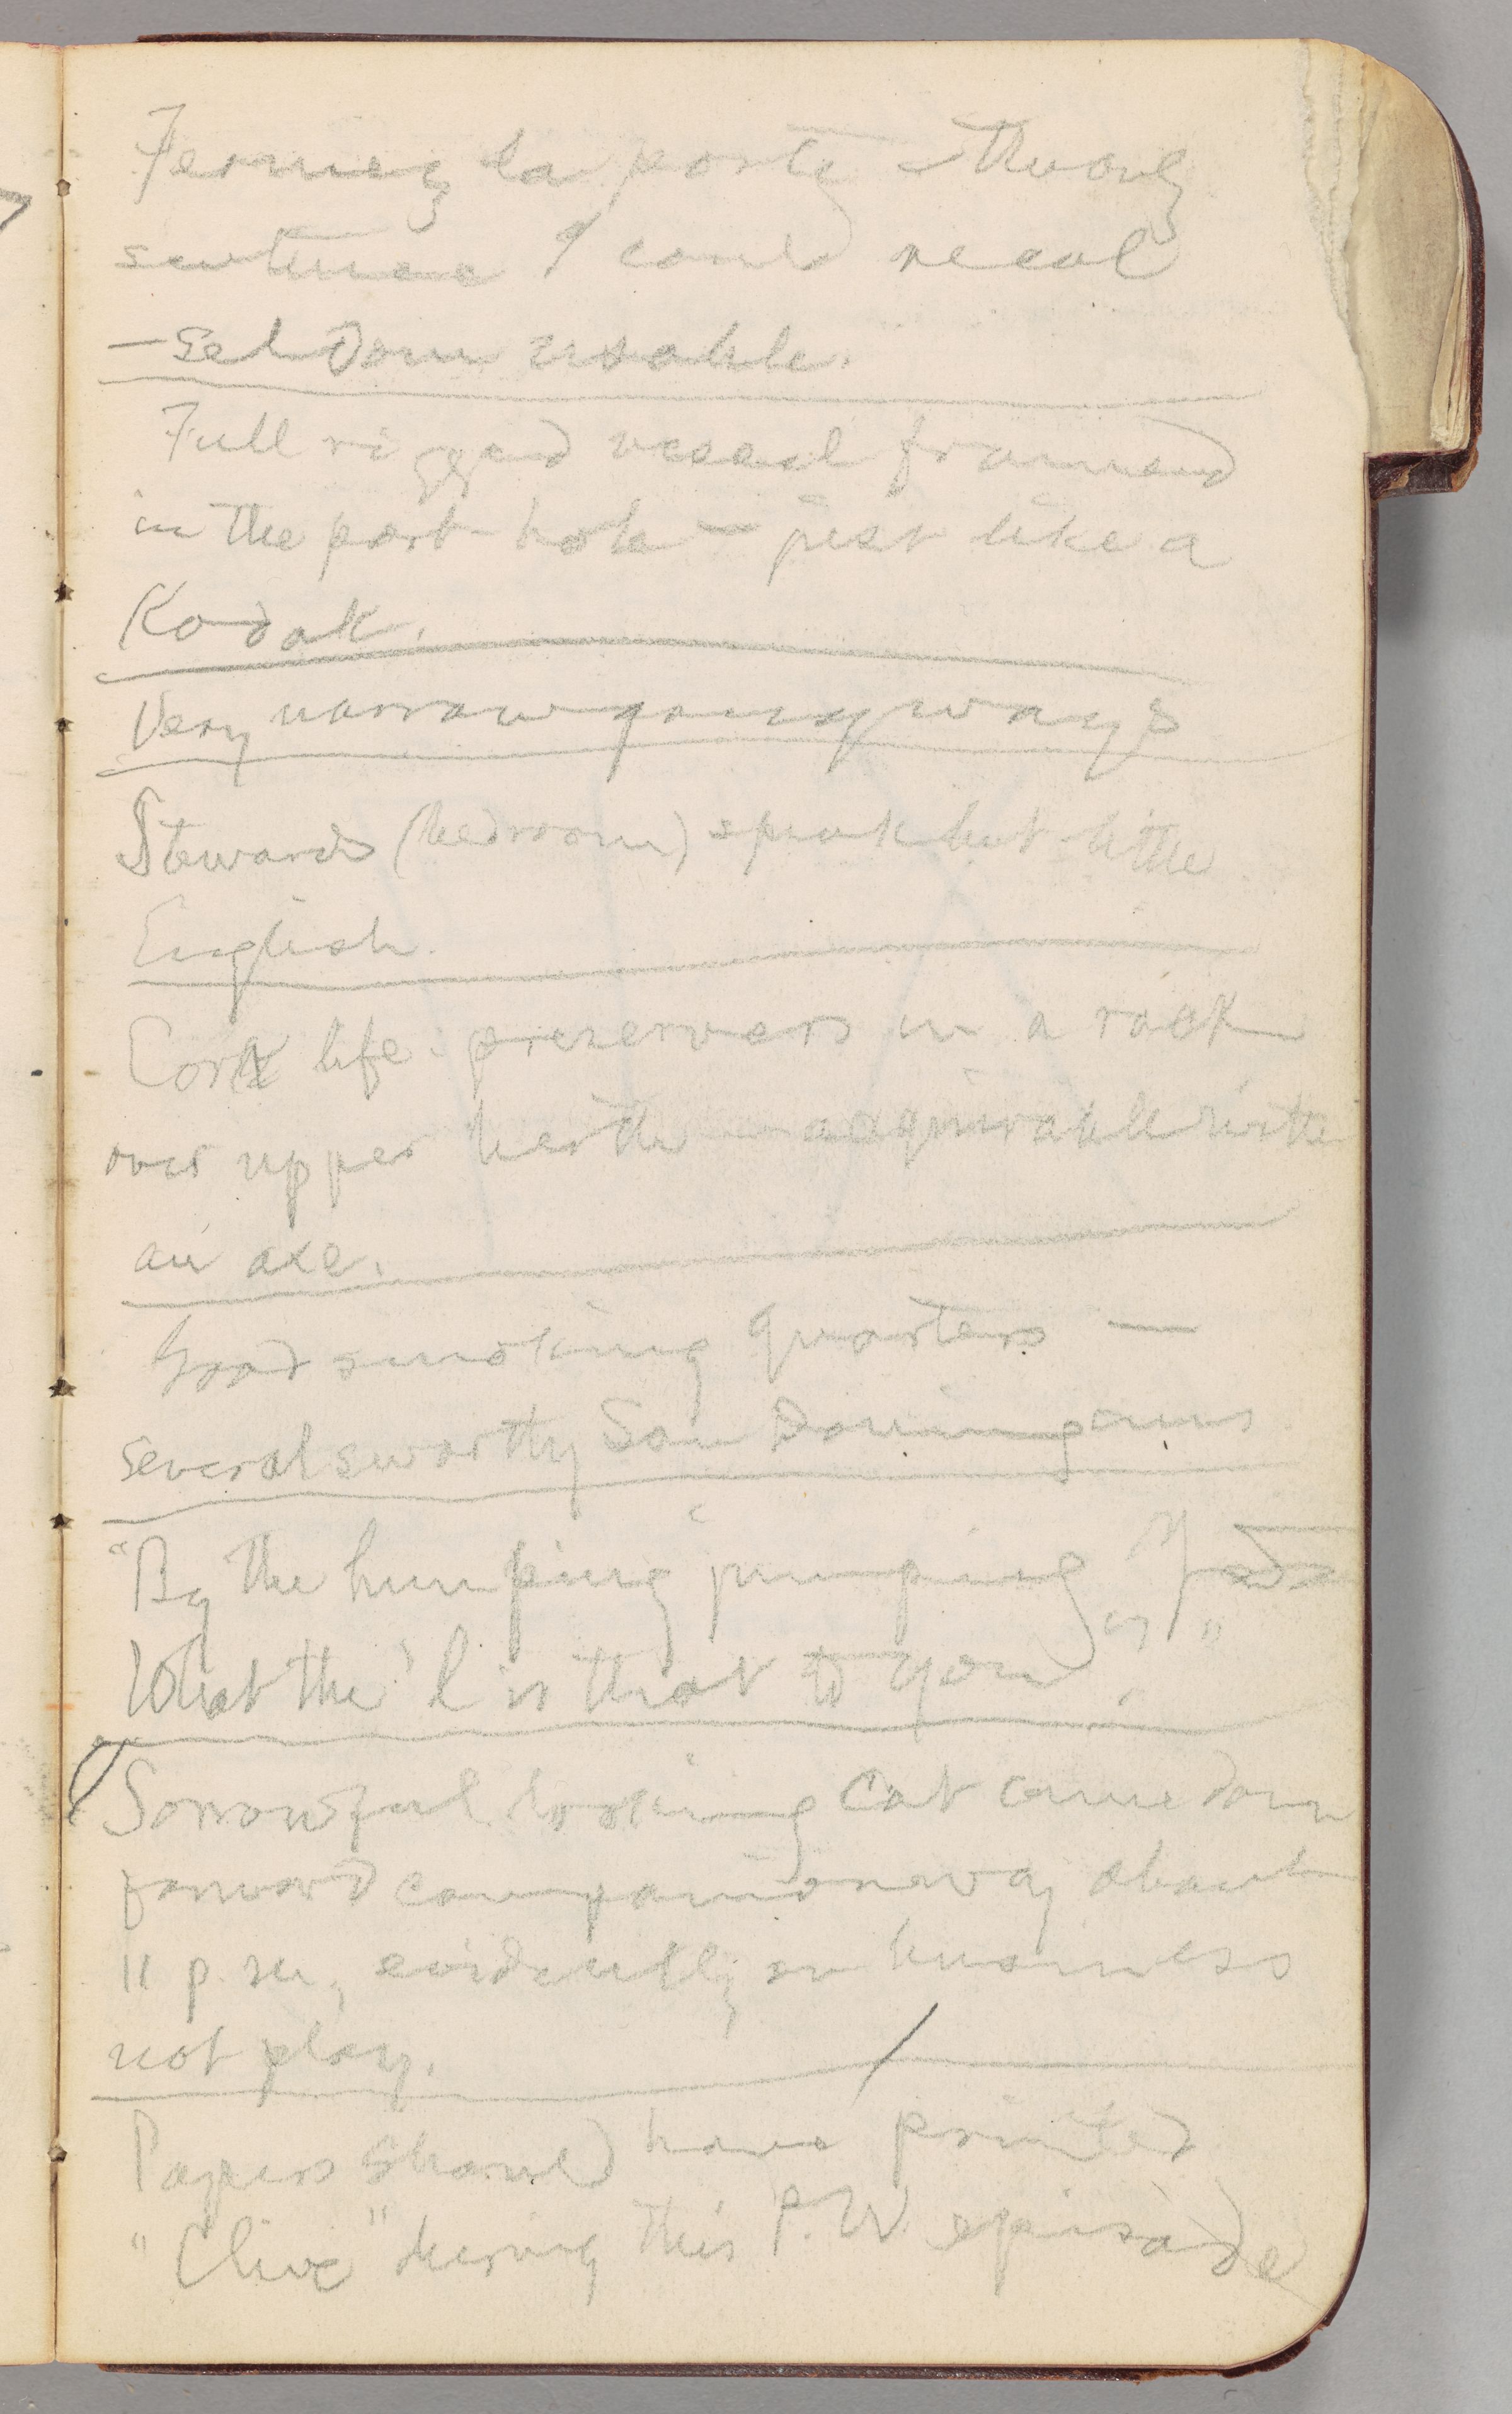 Fermez la porte – the only
sentence I could recal
— seldom usable.
Full rigged vessel framed
in the port-hole – just like a
Kodak.
Very narrow gangways
Stewards (bedroom) speak but little
English.
Cork life-preservers in a rack
over upper berth – acquirable with
an axe.
Good smoking quarters —
several swarthy San Domingans
"By the humping jumping J
What the 'l is that to you?"
Sorrowful looking Cat came down
forward companionway about
11 p.m., evidently on business
not play.
Papers should have printed
"Clive" during this P.W. episode